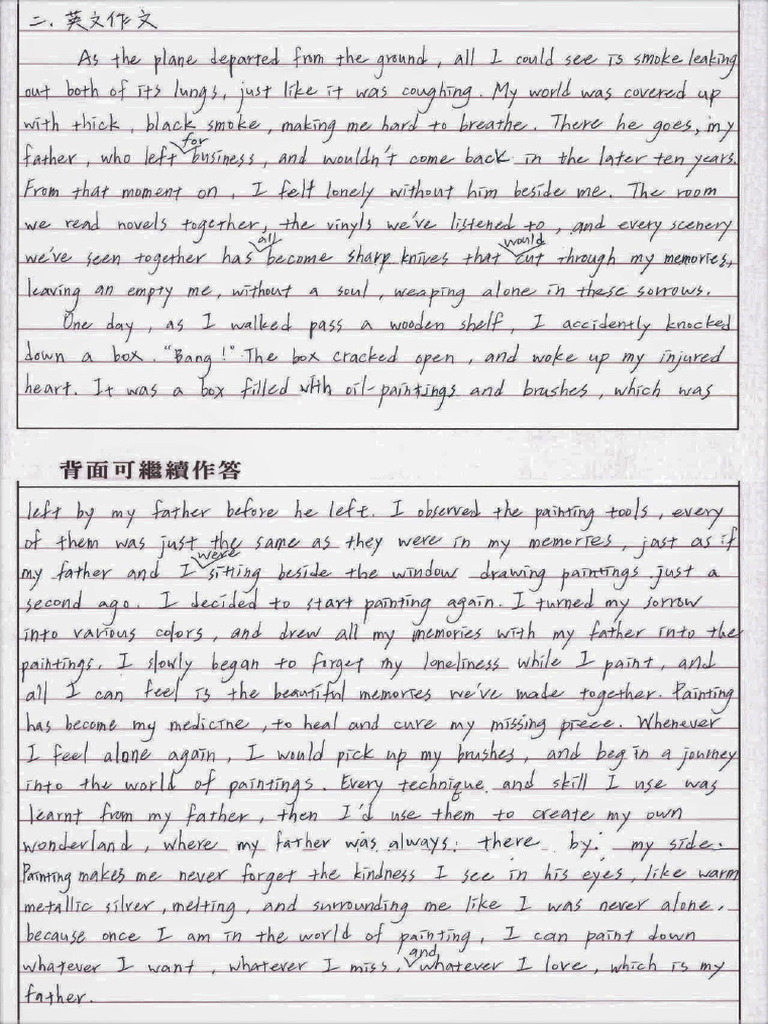 二、英文作文
As the plane departed from the ground, all I could see is smoke leaking
out both of its lungs, just like it was coughing. My world was covered up
with thick, black smoke, making me hard to breathe. There he goes, my
father, who left for business, and wouldn't come back in the later ten years.
From that moment on, I felt lonely without him beside me. The room
we read novels together, the vinyls we've listened to, and every scenery
we've seen together has all become sharp knives that would cut through my memories,
leaving an empty me, without a soul, weaping alone in these sorrows.
One day, as I walked pass a wooden shelf, I accidently knocked
down a box. "Bang!" The box cracked open, and woke up my injured
heart. It was a box filled with oil-paintings and brushes, which was
背面可繼續作答
left by my father before he left. I observed the painting tools, every
of them was just the same as they were in my memories, just as if
my father and I were sitting beside the window drawing paintings just a
second ago. I decided to start painting again. I turned my sorrow
into various colors, and drew all my memories with my father into the
paintings. I slowly began to forget my loneliness while I paint, and
all I can feel is the beautiful memories we've made together. Painting
has become my medicine, to heal and cure my missing piece. Whenever
I feel alone again, I would pick up my brushes, and begin a journey
into the world of paintings. Every technique and skill I use was
learnt from my father, then I'd use them to create my own
wonderland, where my father was always there by my side.
Painting makes me never forget the kindness I see in his eyes, like warm
metallic silver, melting, and surrounding me like I was never alone,
because once I am in the world of painting, I can paint down
whatever I want, whatever I miss, and whatever I love, which is my
father.